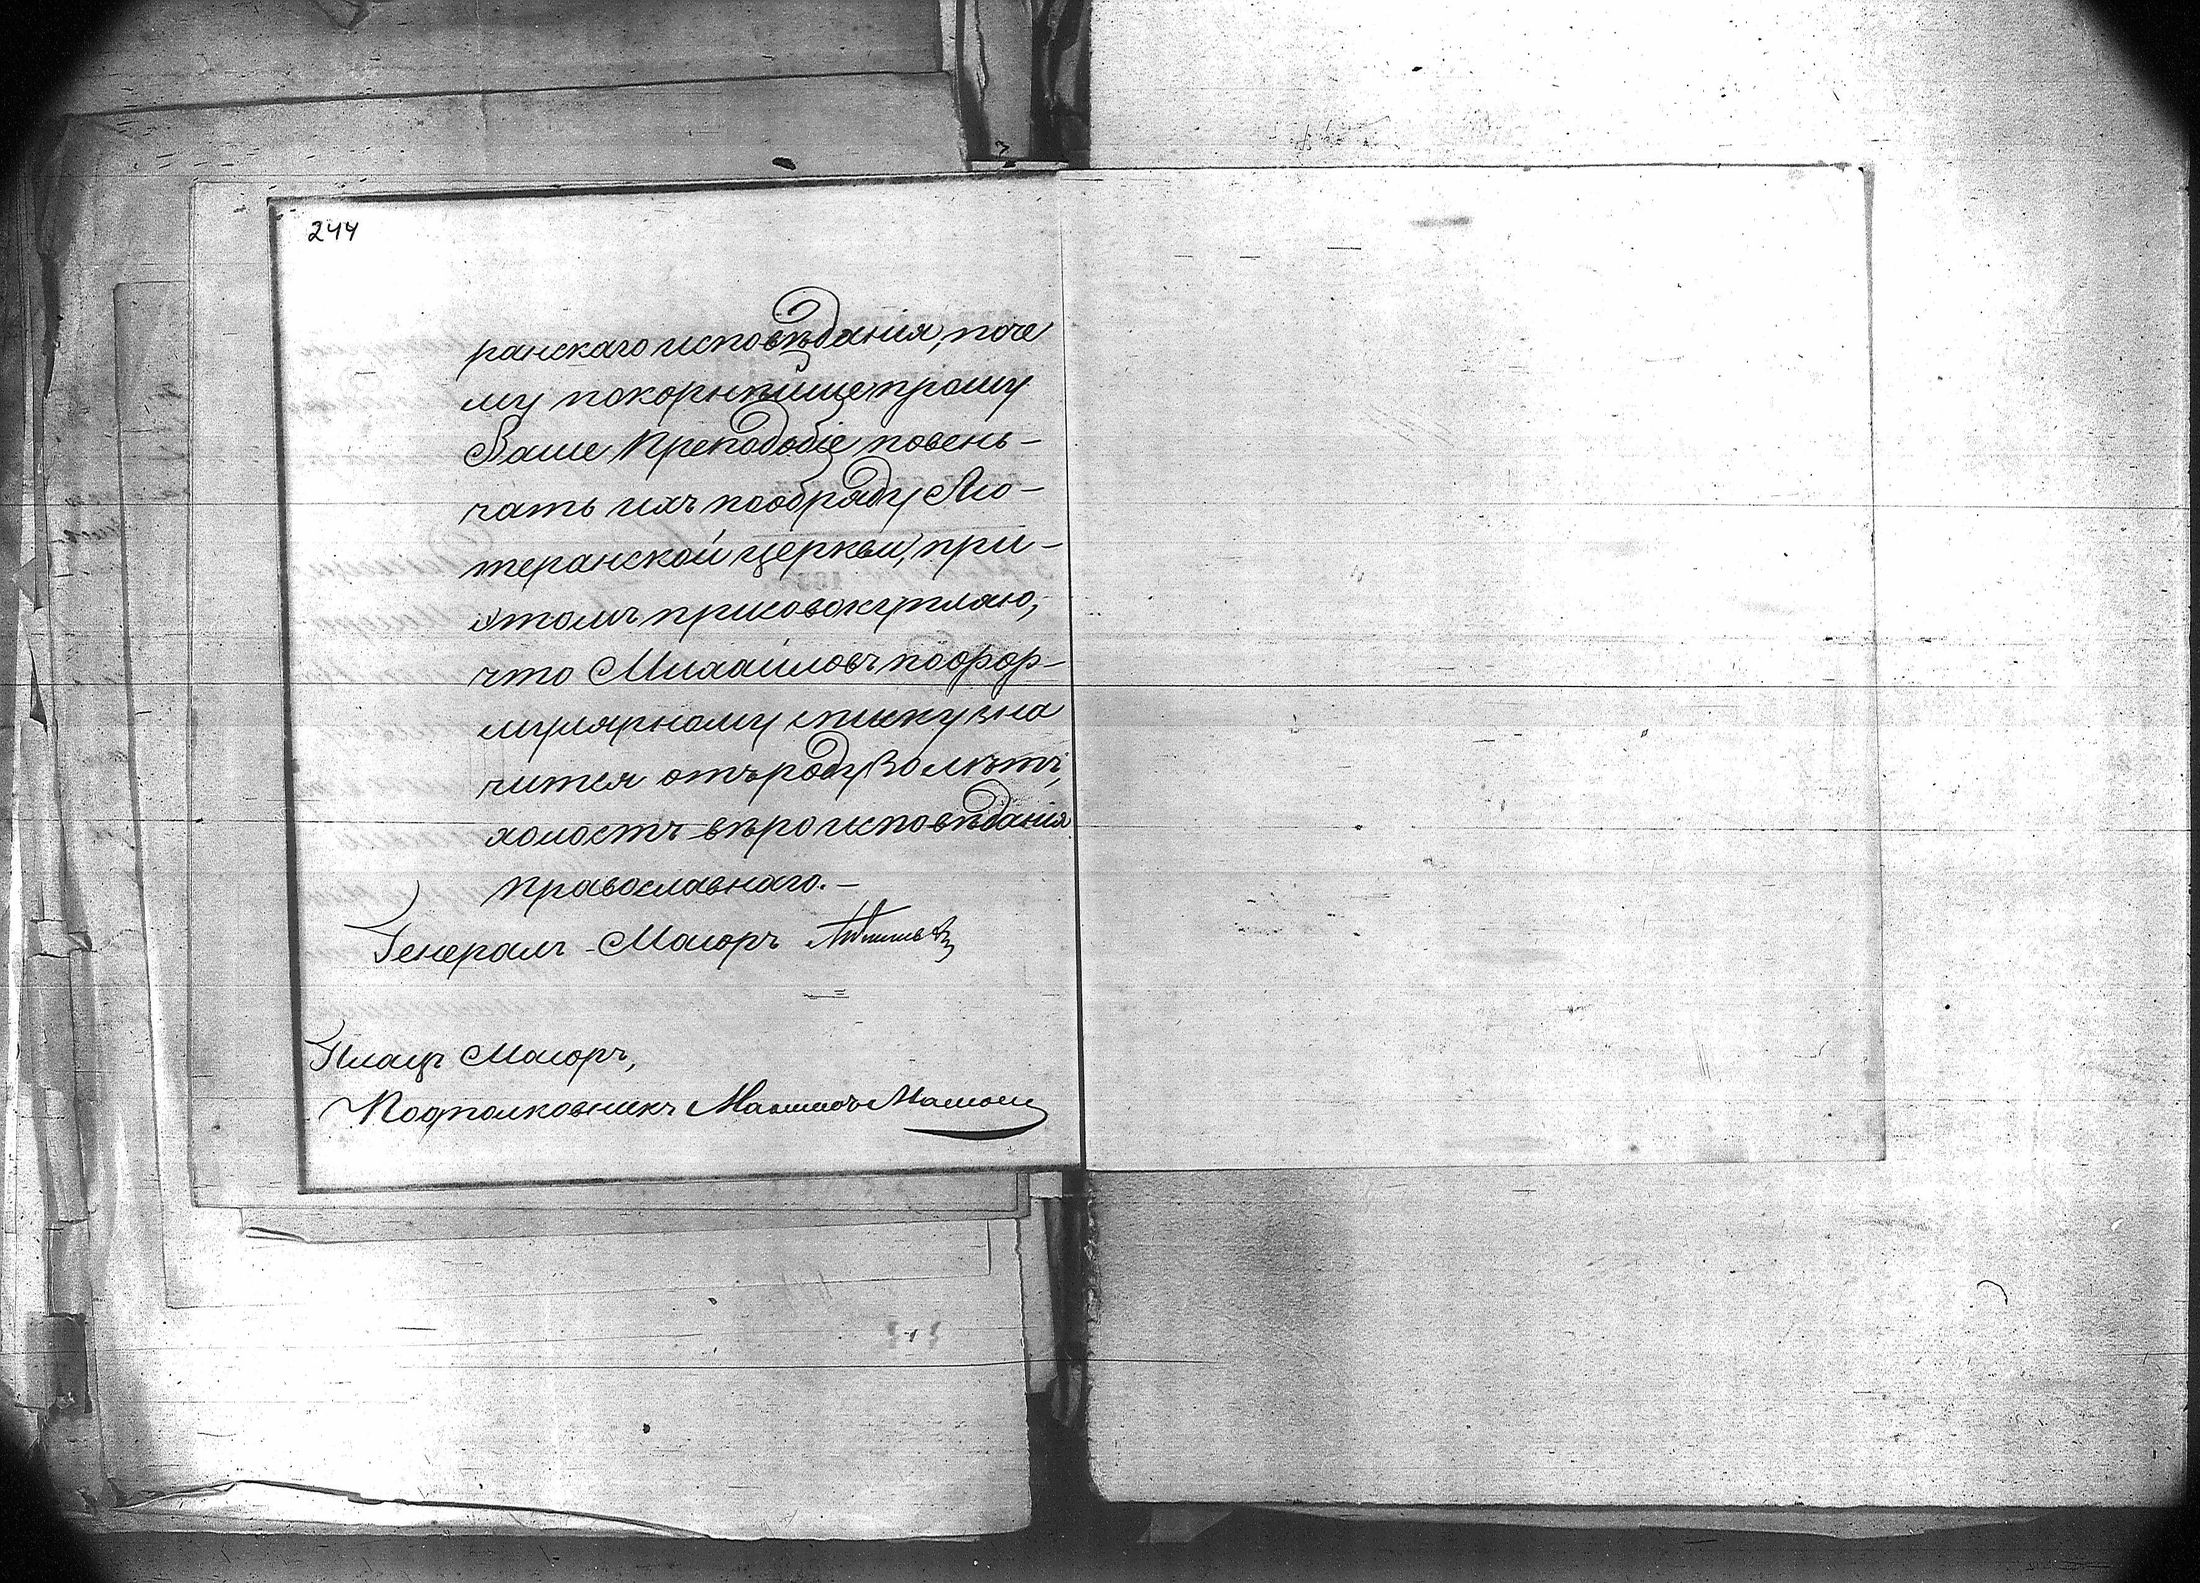 244
ранскаго исповѣданія, поче
му покорнѣйше прошу
Ваше Преподобіе повень-
чать ихъ по обряду Лю-
теранской церкви, при-
этомъ присовокупляю,
что Михайловъ по фор-
мулярному списку зна
чится отъ роду 30 лѣтъ,
холостъ вѣроисповѣданія
православнаго.-
Генералъ-Маіоръ
Плацъ Маіоръ,
Подполковникъ